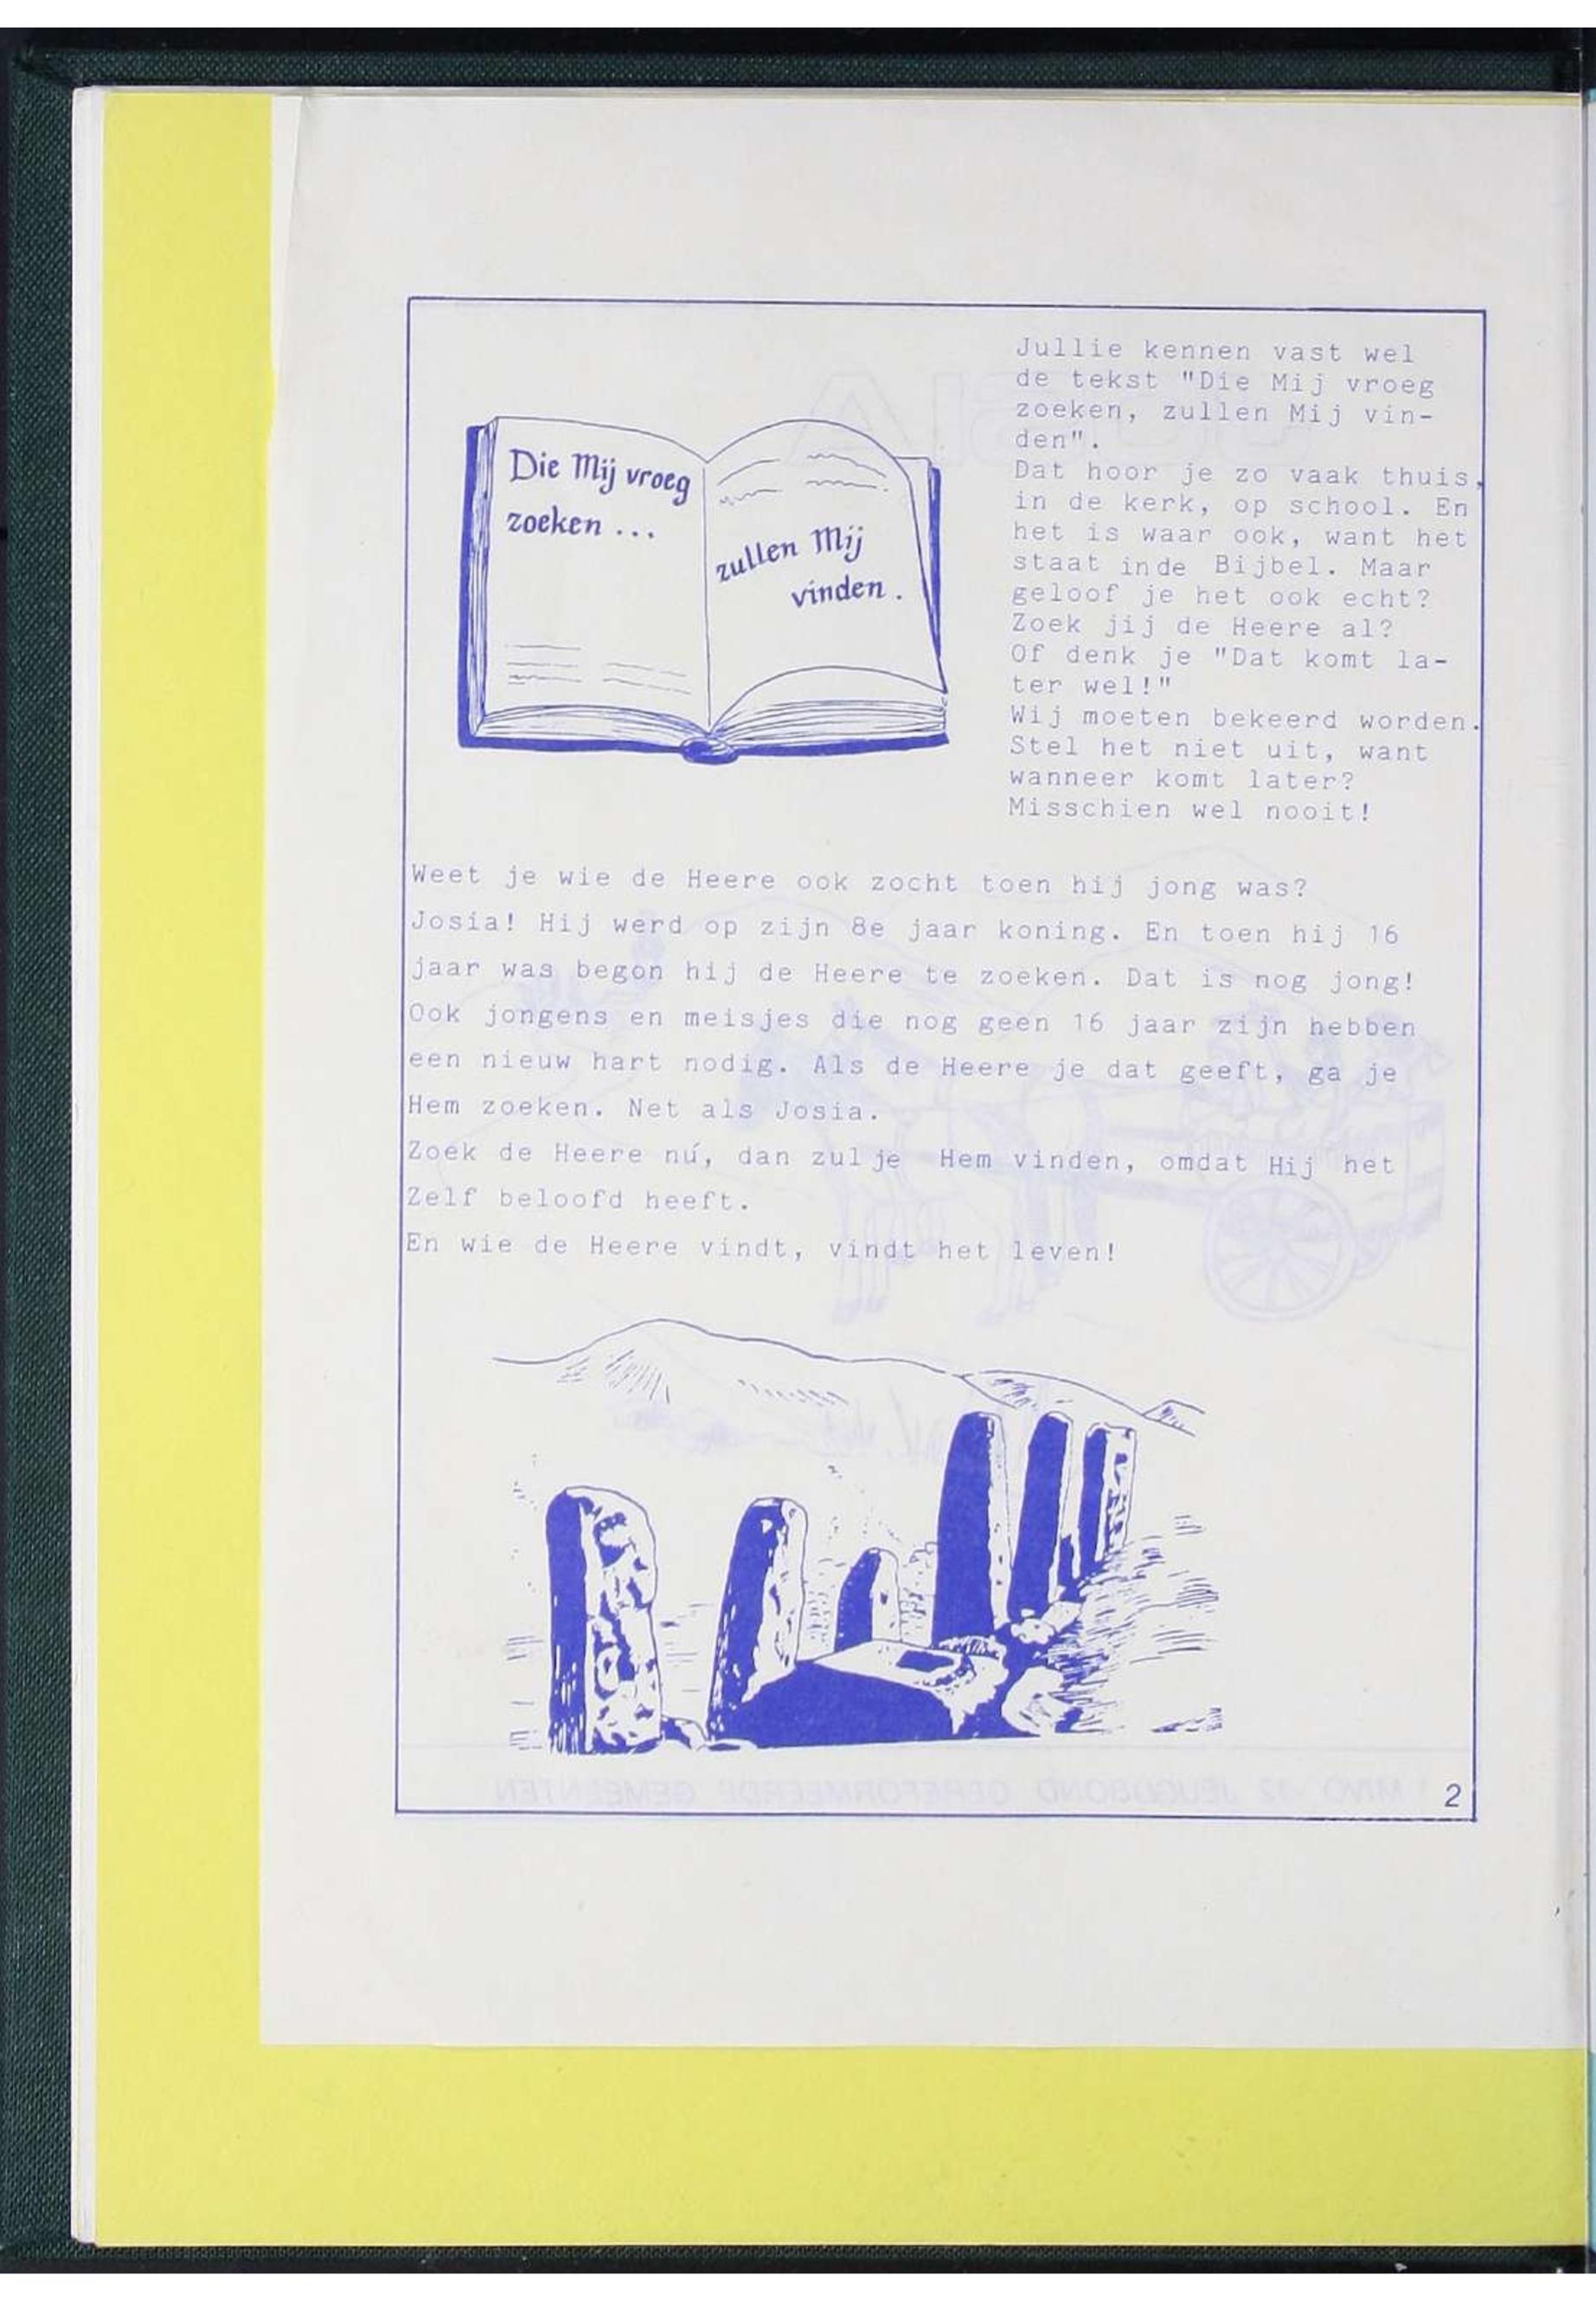 Die Mij vroeg
zoeken ...
zullen Mij
vinden.
Jullie kennen vast wel
de tekst "Die Mij vroeg
zoeken, zullen Mij vin-
den".
Dat hoor je zo vaak thuis,
in de kerk, op school. En
het is waar ook, want het
staat in de Bijbel. Maar
geloof je het ook echt?
Zoek jij de Heere al?
Of denk je "Dat komt la-
ter wel!"
Wij moeten bekeerd worden.
Stel het niet uit, want
wanneer komt later?
Misschien wel nooit!
Weet je wie de Heere ook zocht toen hij jong was?
Josia! Hij werd op zijn 8e jaar koning. En toen hij 16
jaar was begon hij de Heere te zoeken. Dat is nog jong!
Ook jongens en meisjes die nog geen 16 jaar zijn hebben
een nieuw hart nodig. Als de Heere je dat geeft, ga je
Hem zoeken. Net als Josia.
Zoek de Heere nú, dan zul je Hem vinden, omdat Hij het
Zelf beloofd heeft.
En wie de Heere vindt, vindt het leven!
2